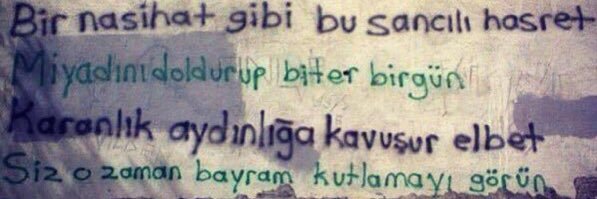 Bir nasihat gibi bu sancılı hasret
Miyadını doldurup biter birgün
Karanlık aydınlığa kavuşur elbet
Siz o zaman bayram kutlamayı görün